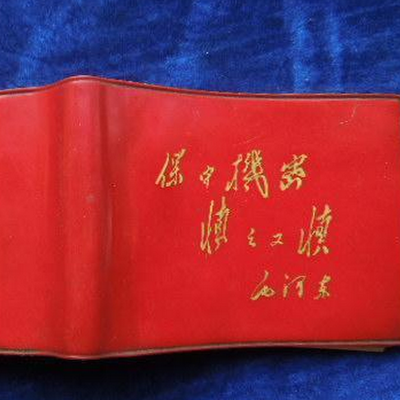 保守機密
慎之又慎
毛泽东